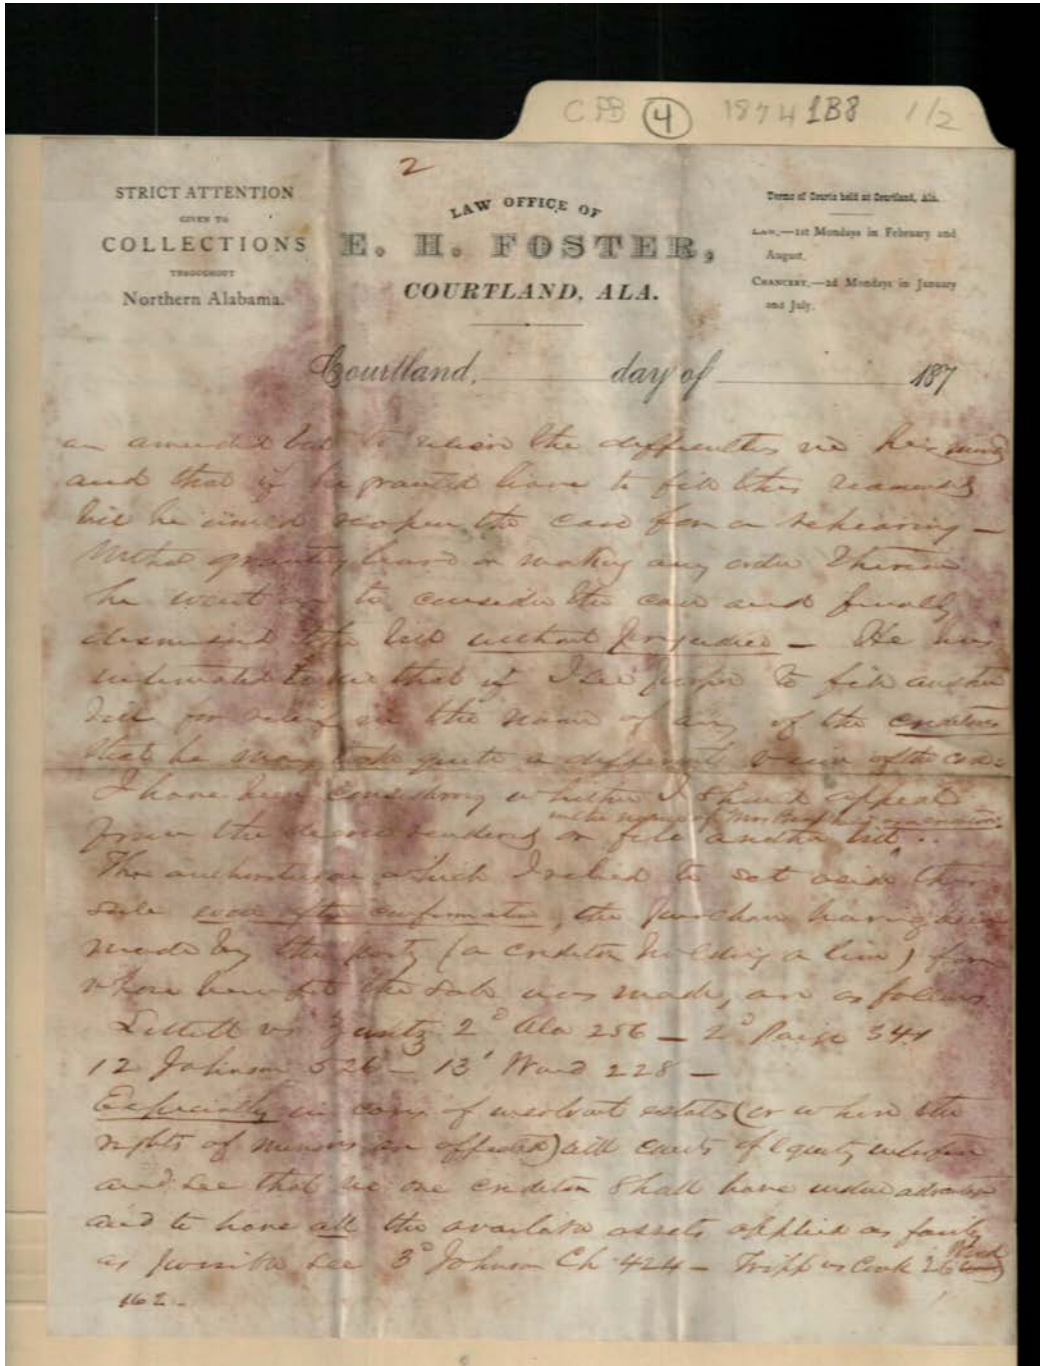 CPB 4 1874 1B8 1/2
2
STRICT ATTENTION
GIVEN TO
COLLECTIONS
THROUGHOUT
Northern Alabama.
LAW OFFICE OF
E. H. FOSTER,
COURTLAND, ALA.
Terms of Courts held at Courtland, Ala.
LAW,—1st Mondays in February and
August.
CHANCERY,—2d Mondays in January
and July.
Courtland, day of 187
an amended bill to the difficulties in his mind
and that if he granted leave to file this
bill he would reopen the case for a rehearing —
granting leave or making any order therein
he went on to consider the case and finally
dismissed the bill without prejudice — He has
intimated to me that if I see proper to file another
bill for relief in the name of any of the creditors
that he may take quite a different view of the case
I have been considering whether I should appeal
in the name of Mrs
from the decree rendered or file another bill..
The authorities on which I relied to set aside this
sale even after confirmation, the purchase having been
made by the party (a creditor holding a lien) for
whose benefit the sale was made, are as follows
vs 2d Ala 256 — 2d Paige 344
12 Johnson 526 — 13 228 —
Especially in cases of insolvent estates (or where the
rights of minors are affected) will courts of equity interfere
and see that no one creditor shall have undue advantage
and to have all the available assets applied as fairly
as possible See 3d Johnson Ch 424 — Tripp vs Cook 26 Wend
162 —